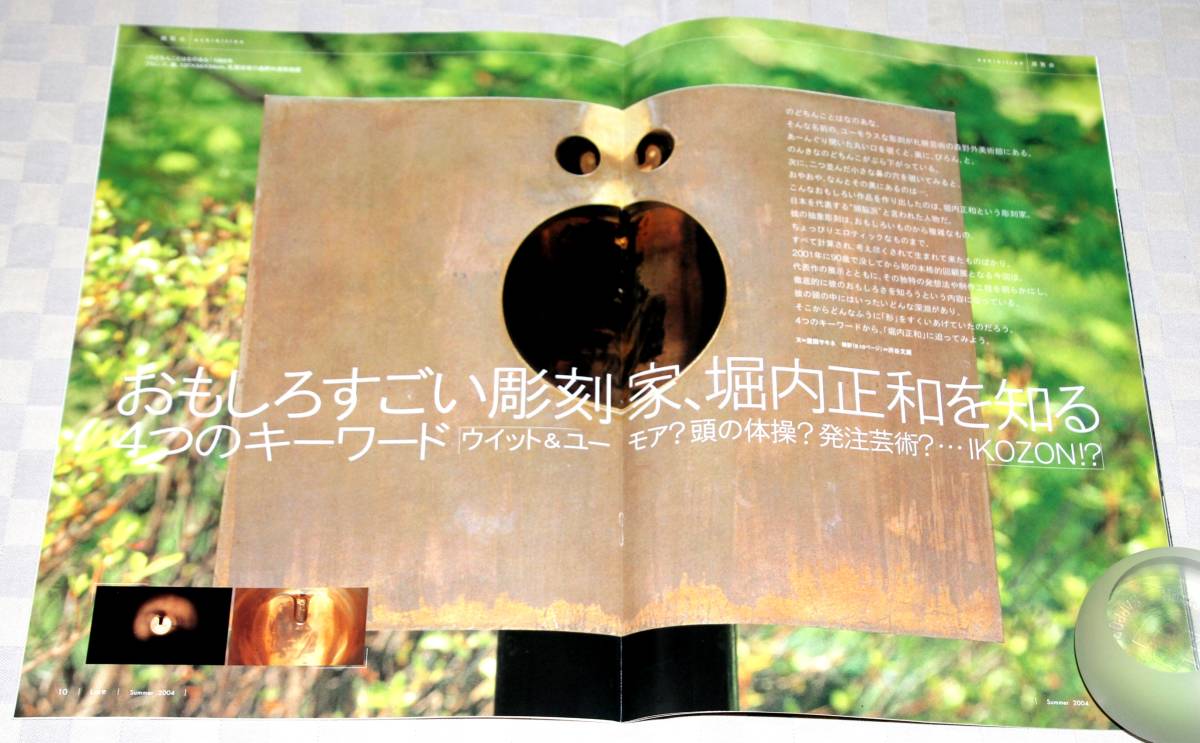 展覧会 exhibition
exhibition 展覧会
のどちんことはなのあな。
そんな名前の、ユーモラスな彫刻が札幌芸術の森野外美術館にある。
あーんぐり開いた丸い口を覗くと、奥に、びろん、と、
のんきなのどちんこがぶら下がっている。
次に、二つ並んだ小さな鼻の穴を覗いてみると、
おやおや、なんとその奥にあるのは…。
こんなおもしろい作品を作り出したのは、堀内正和という彫刻家。
日本を代表する“頭脳派”と言われた人物だ。
彼の抽象彫刻は、おもしろいものから複雑なもの、
ちょっぴりエロティックなものまで、
すべて計算され、考え尽くされて生まれて来たものばかり。
2001年に90歳で没してから初の本格的回顧展となる今回は、
代表作の展示とともに、その独特の発想法や制作工程を明らかにし、
徹底的に彼のおもしろさを知ろうという内容になっている。
彼の頭の中にはいったいどんな深淵があり、
そこからどんなふうに「形」をすくいあげていたのだろう。
4つのキーワードから、「堀内正和」に迫ってみよう。
おもしろすごい彫刻家、堀内正和を知る
4つのキーワード ウイット&ユーモア?頭の体操?発注芸術?…IKOZON!?
10 | | Summer 2004 |
| Summer 2004